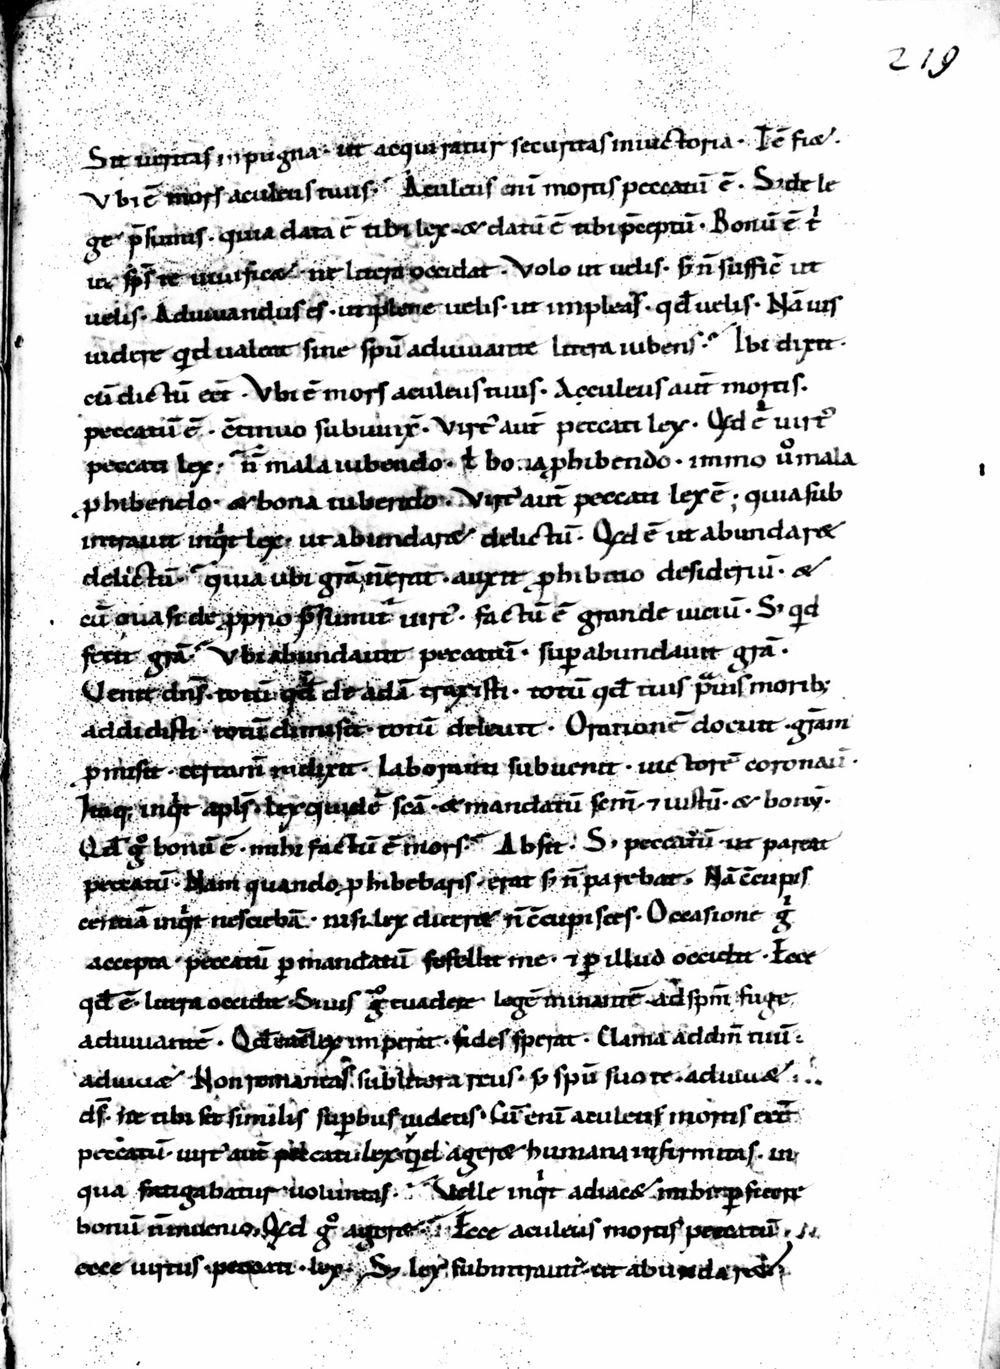 219
Sit ueritas in pugna · ut acquiratur securitas in uictoria · Tē fiæ ·
Vbi ē mors aculeus tuus · Aculeus eni᷑ mortis peccatū ē · S; de le
ge p̄sumis · quia data ē tibi lex · æ datū ē tibi p̄ceptū · Bonū ē t'
ut sps̄ te uiuificæ · ne littera occidat · Volo ut uelis · s; n̄ suffic̄ ut
uelis · Adiuuandus es · ut plene uelis · ut impleas · qd̄ uelis · Nā uis
uidere qid ualeat sine spū adiuuante littera iubens · Ibi dixit ·
cū dictū eēt · Vbi ē mors aculeus tuus · Acculeus aut̄ mortis ·
peccatū ē · c̄tinuo subiunx̄ · Virt᾽ aut̄ peccati lex · Qd ē uirt᾽
peccati lex · n̄ mala iubendo · ł bona ꝓhibendo · immo ů mala
ꝓhibendo · æ bona iubendo · Virt᾽ aut̄ peccati lex ē ; quia sub
intrauit inqͥt lex · ut abundaræ delictū · Qd ē ut abundaræ
delictū · quia ubi grā n̄ erat · auxit ꝓhibitio desideriū · æ
cū quasi de ꝓprio p̄sumit᷑ uirt᾽ · factū ē grande uiciū · S; qid
fecit grā · Vbi abundauit peccatū · suꝑabundauit grā ·
Venit dns̄ · totū qd̄ de adā traxisti · totū qd̄ tuis prauis morib;
addidisti · totū dimisit · totū deleuit · Orationē docuit · grām
ꝓmisit · certam̄ indixit · laboranti subuenit · uictorē coronau ·
Itaq; inqͥt apls̄ · lex quidē scā · æ mandatū scm̄ · ⁊ iustū · æ bonū ·
Qd̄ gͦ bonū ē · mihi factū ē mors · Absit · S; peccatū · ut pareat
peccatū · Nam quando ꝓhibebaris · erat s; n̄ parebat · Nā c̄cupis
centiā inqͥt nesciebā · nisi lex diceræ n̄ c̄cupisces · Occasione gͥ
accepta · peccatū ꝑ mandatū fefellit me · ⁊ ꝑ illud occidit · Ecce
qd̄ ē · littera occidit · Si uis gͦ euadere legē minantē · ad spm̄ fuge
adiuuantē · Qd̄ enī lex imperat · fides sperat · Clama ad dm̄ tuū :
adiuuæ Non remaneas sub littera reus · s; spū suo te · adiuuæ
ds̄ · ne tibi sit similis suꝑbus iudeus · Cū enī aculeus mortis eēt
peccatū · uirt᾽ aut̄ peccati lex · qid ageræ humana infirmitas · in
qua fatigabatur uoluntas · Velle inqͥt adiacæ mihi ꝑficere
bonū n̄ inuenio · Qd gͦ ageræ · Ecce aculeus mortis peccatū
ecce uirtus · peccati · lex · S; lex subintrauit · ut abundaræ